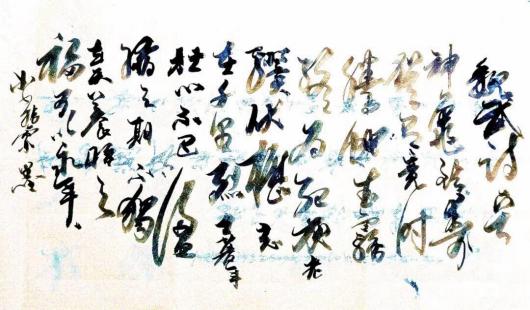 魏武詩
神龜雖壽
猶有竟時
騰蛇乘霧
終為土灰老
驥伏櫪志
在千里烈士暮年
壯心不已盈
縮之期不獨
在天養怡之
福可以永年